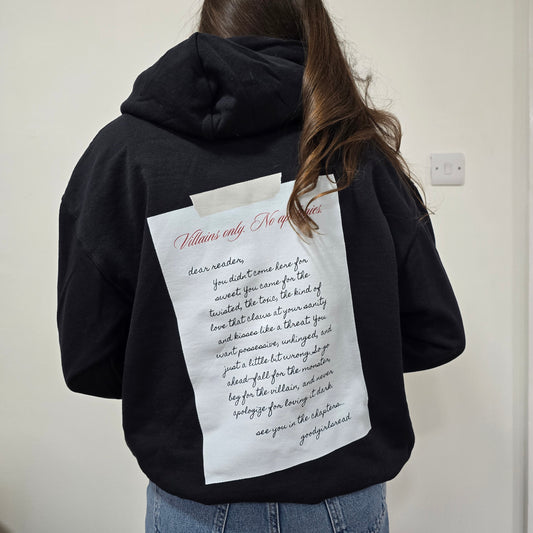 Villains only. No
dear reader,
You didn't come here for
sweet. You came for the
twisted, the toxic, the kind of
love that claws at your sanity
and kisses like a threat. You
want possessive, unhinged, and
just a little bit wrong. So go
ahead—fall for the monster,
beg for the villain, and never
apologize for loving it dark.
see you in the chapters...
goodgirlsread